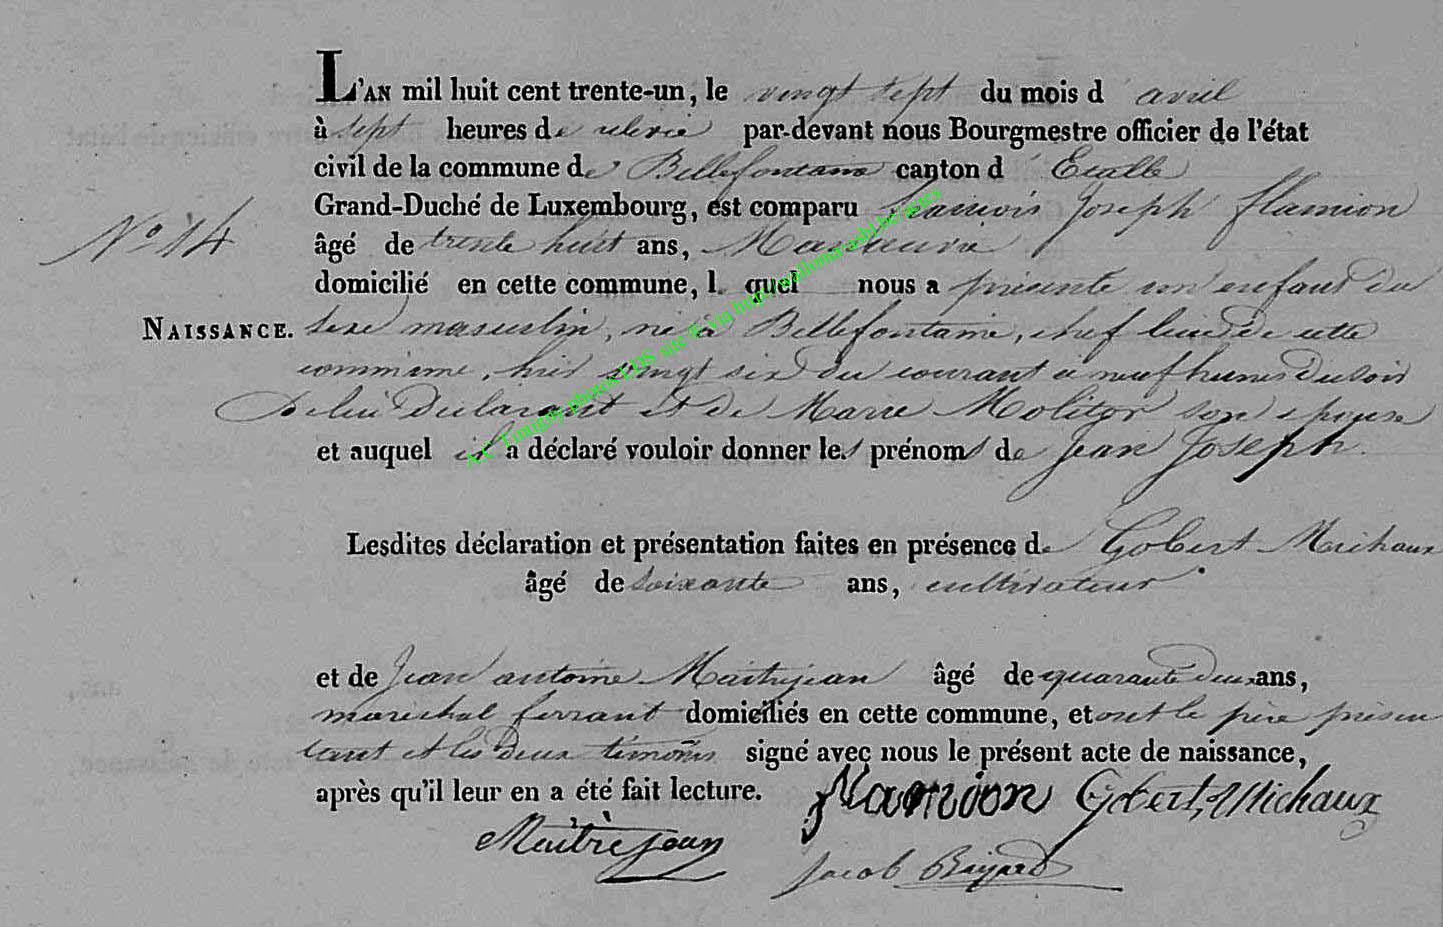 L'AN mil huit cent trente-un, le vingt sept du mois d avril
à sept heures de relevée par-devant nous Bourgmestre officier de l'état
civil de la commune de Bellefontaine canton d Etalle
Grand-Duché de Luxembourg, est comparu François Joseph Flamion
N° 14
âgé de trente huit ans, Manoeuvre
domicilié en cette commune, l quel nous a présenté un enfant du
NAISSANCE. sexe masculin, né à Bellefontaine, chef lieu de cette
commune, hier vingt six du courant à neuf heures du soir
De lui Déclarant et de Marie Molitor son épouse
et auquel il a déclaré vouloir donner les prénoms de Jean Joseph.
Lesdites déclaration et présentation faites en présence de Gobert Michaux
âgé de soixante ans, cultivateur
et de Jean antoine Maitrejean âgé de quarante deux ans,
maréchal ferrant domiciliés en cette commune, et ont le père présen
tant et les deux témoins signé avec nous le présent acte de naissance,
après qu'il leur en a été fait lecture. Flamion Gobert, Michaux
Maitrejean
Jacob